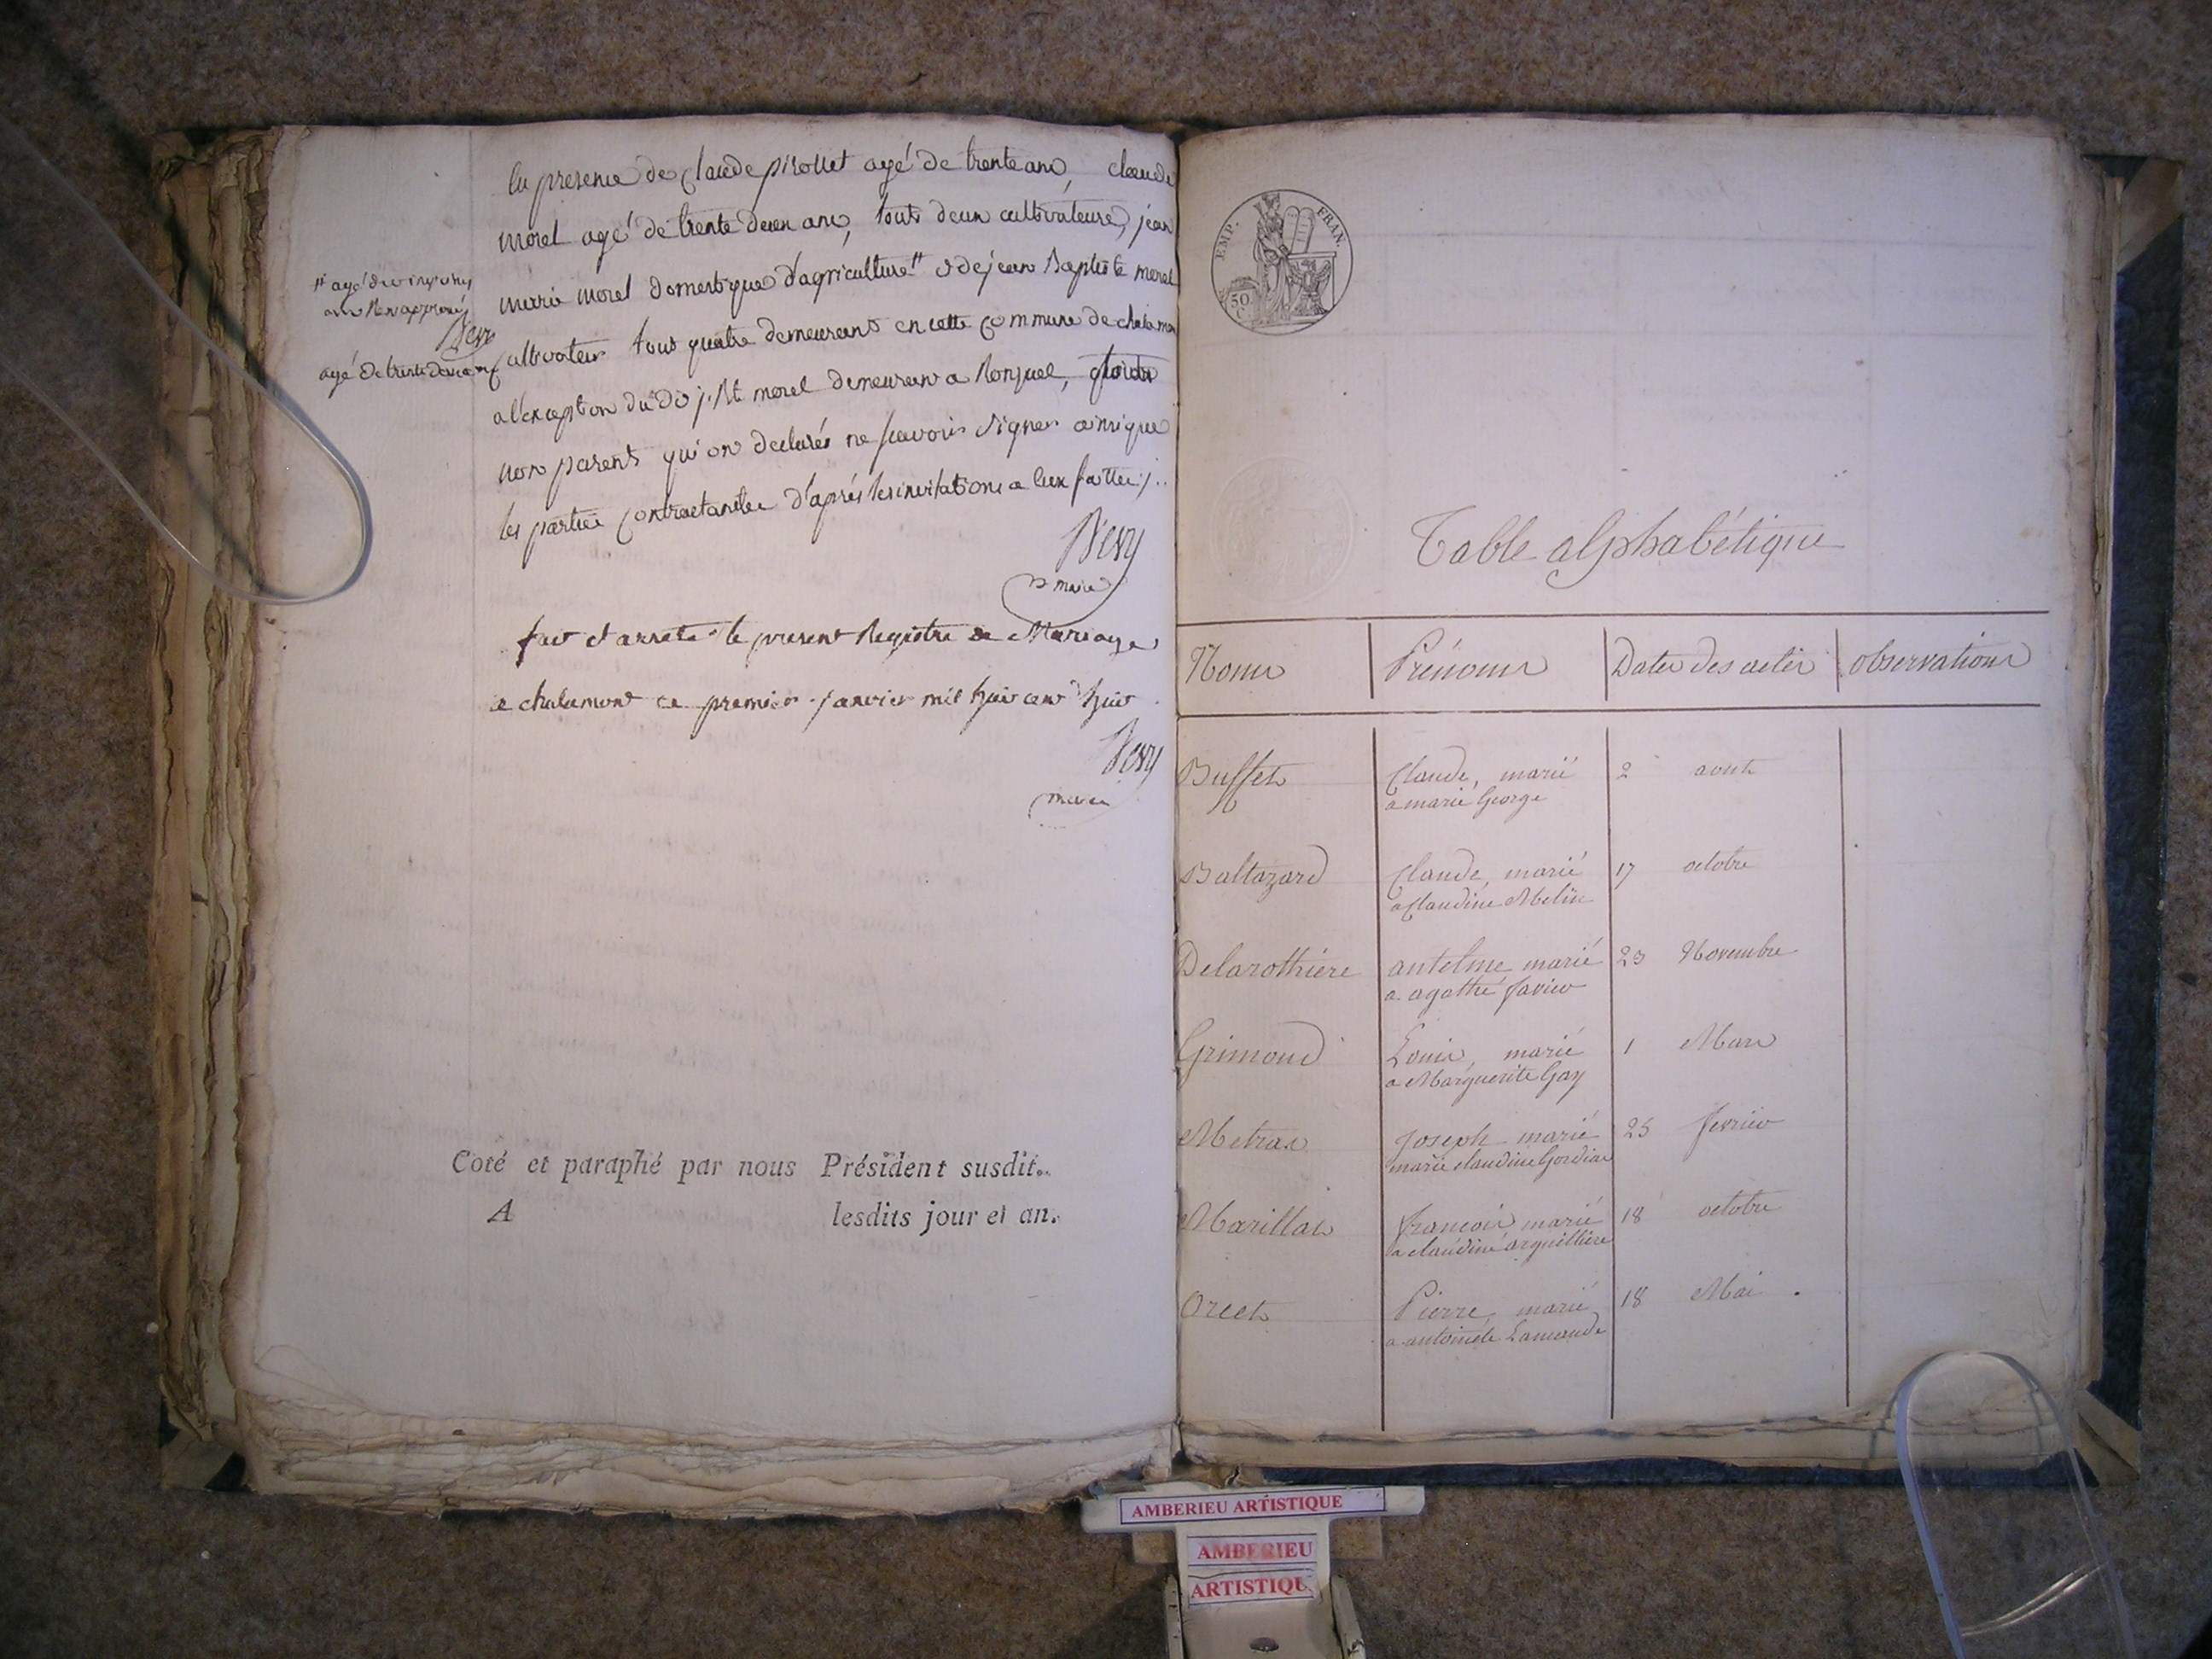 En presence de Claude pirollet agé de trente ans, claude
morel agé de trente deux ans, touts deux cultivateurs, jean
marie morel domestique d'agriculture # & de jean Baptiste morel
cultivateur tous quatre demeurant en cette Commune de chalamon
a l'exception du di j. Bte morel demeurant a Ronzuel,
non parents qui on declarés ne scavoir signer ainsi que
les parties contractantes d'après les invitations a eux faittes ;
maire
# agé de vingt
ans Renv approuvé
agé de trente deux ans
fait et arrete le present Registre de Mariage
a chalamont ce premier janvier mil huit cent huit
maire
Coté et paraphé par nous Président susdit.
A lesdits jour et an.
EMP. FRAN.
50
C.
Table alphabétique
Noms Prénoms Dates des actes observations
Buffet Claude, marié 2 aout
a marie George
Baltazard Claude, marié 17 octobre
a Claudine Melin
Delarothiere antelme marié 23 Novembre
a agathe favier
Grimoud Louis, marié 1 Mars
a Marguerite Gay
Metras Joseph marié 25 fevrier
marie claudine Gordiat
Marillat françois marié 18 octobre
a claudine arquilliere
Orcet Pierre, marié 18 Mai
a antoinete Lamande
AMBERIEU ARTISTIQUE
AMBERIEU
ARTISTIQU